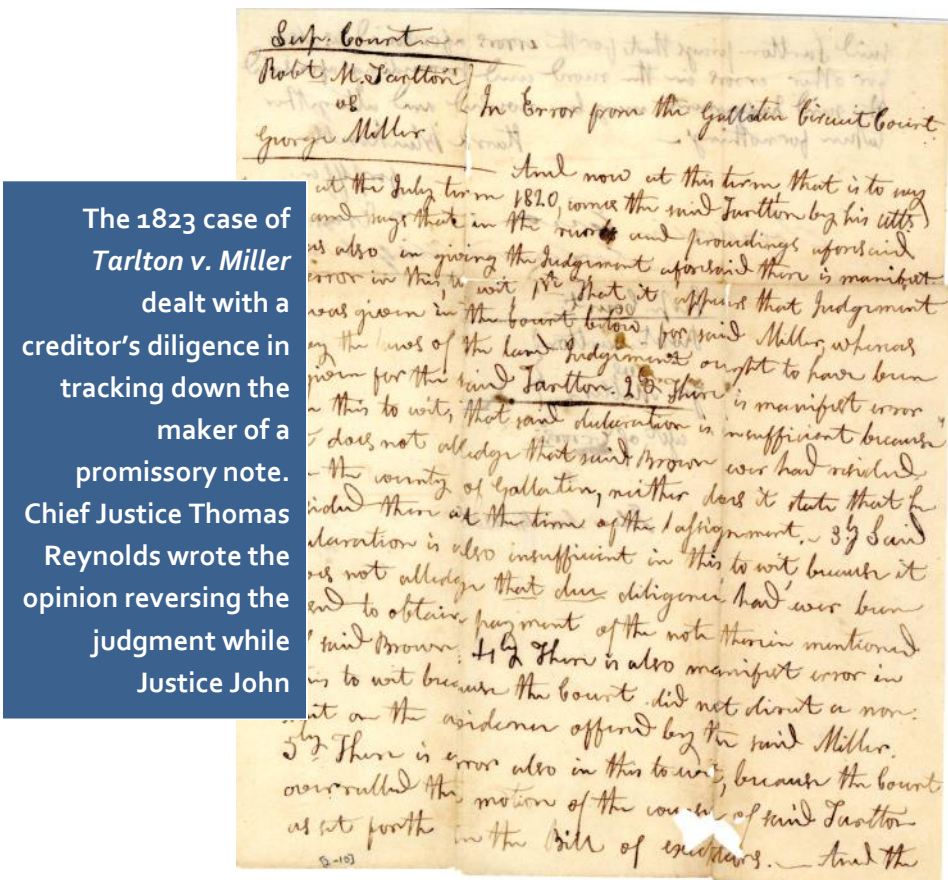 The 1823 case of
Tarlton v. Miller
dealt with a
creditor's diligence in
tracking down the
maker of a
promissory note.
Chief Justice Thomas
Reynolds wrote the
opinion reversing the
judgment while
Justice John
Sup. Court.
Robt M. Tarlton
vs
George Miller
In Error from the Gallatin Circuit Court
And now at this term that is to say
at the July term 1820, comes the said Tarlton by his atts
and says that in the record and proceedings aforesaid
as also in giving the Judgement aforesaid there is manifest
error in this, to wit 1st That it appears that Judgement
was given in the Court below for said Miller, whereas
by the laws of the land Judgement ought to have been
given for the said Tarlton. 2d There is manifest error
in this to wit, that said declaration is insufficient because
does not alledge that said Brown ever had resided
the county of Gallatin, neither does it state that he
resided there at the time of the assignment. 3ly Said
declaration is also insufficient in this to wit because it
does not alledge that due diligence had ever been
to obtain payment of the note therein mentioned
said Brown. 4ly There is also manifest error in
this to wit because the Court did not direct a non.
suit on the evidence offered by the said Miller.
5ly There is error also in this to wit, because the Court
overrulled the motion of the counsel of said Tarlton
as set forth in the Bill of exceptions. And the